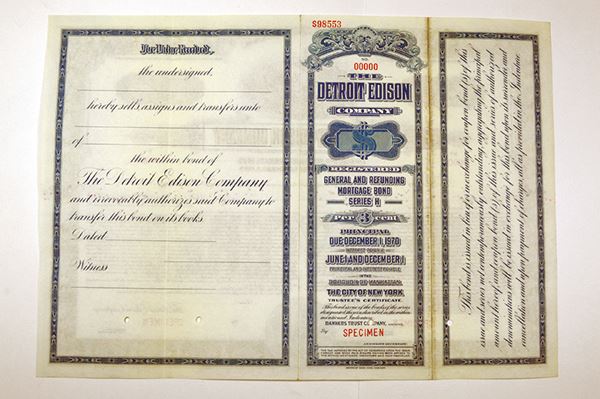 For Value Received,
the undersigned,
hereby sells, assigns and transfers unto
of
the within bond of
The Detroit Edison Company
and irrevocably authorizes said Company to
transfer this bond on its books.
Dated
Witness
S98553
NO.
00000
THE
DETROIT EDISON
COMPANY
$
REGISTERED
GENERAL AND REFUNDING
MORTGAGE BOND
SERIES H
Per 3 cent
PRINCIPAL
DUE DECEMBER 1, 1970
JUNE 1 AND DECEMBER 1
PRINCIPAL AND INTEREST PAYABLE
IN THE
BOROUGH OF MANHATTAN
THE CITY OF NEW YORK
TRUSTEE'S CERTIFICATE.
This bond is one of the bonds, of the series
designated therein, described in the within-
mentioned Indenture.
BANKERS TRUST COMPANY,
By
SPECIMEN
This bond is issued in lieu of or in exchange for coupon bond(s) of this
issue and series not contemporaneously outstanding aggregating the principal
amount hereof; and coupon bond(s) of this issue and series of authorized
denominations will be issued in exchange for this bond upon its surrender and
cancellation and upon payment of charges, all as provided in the Indenture.